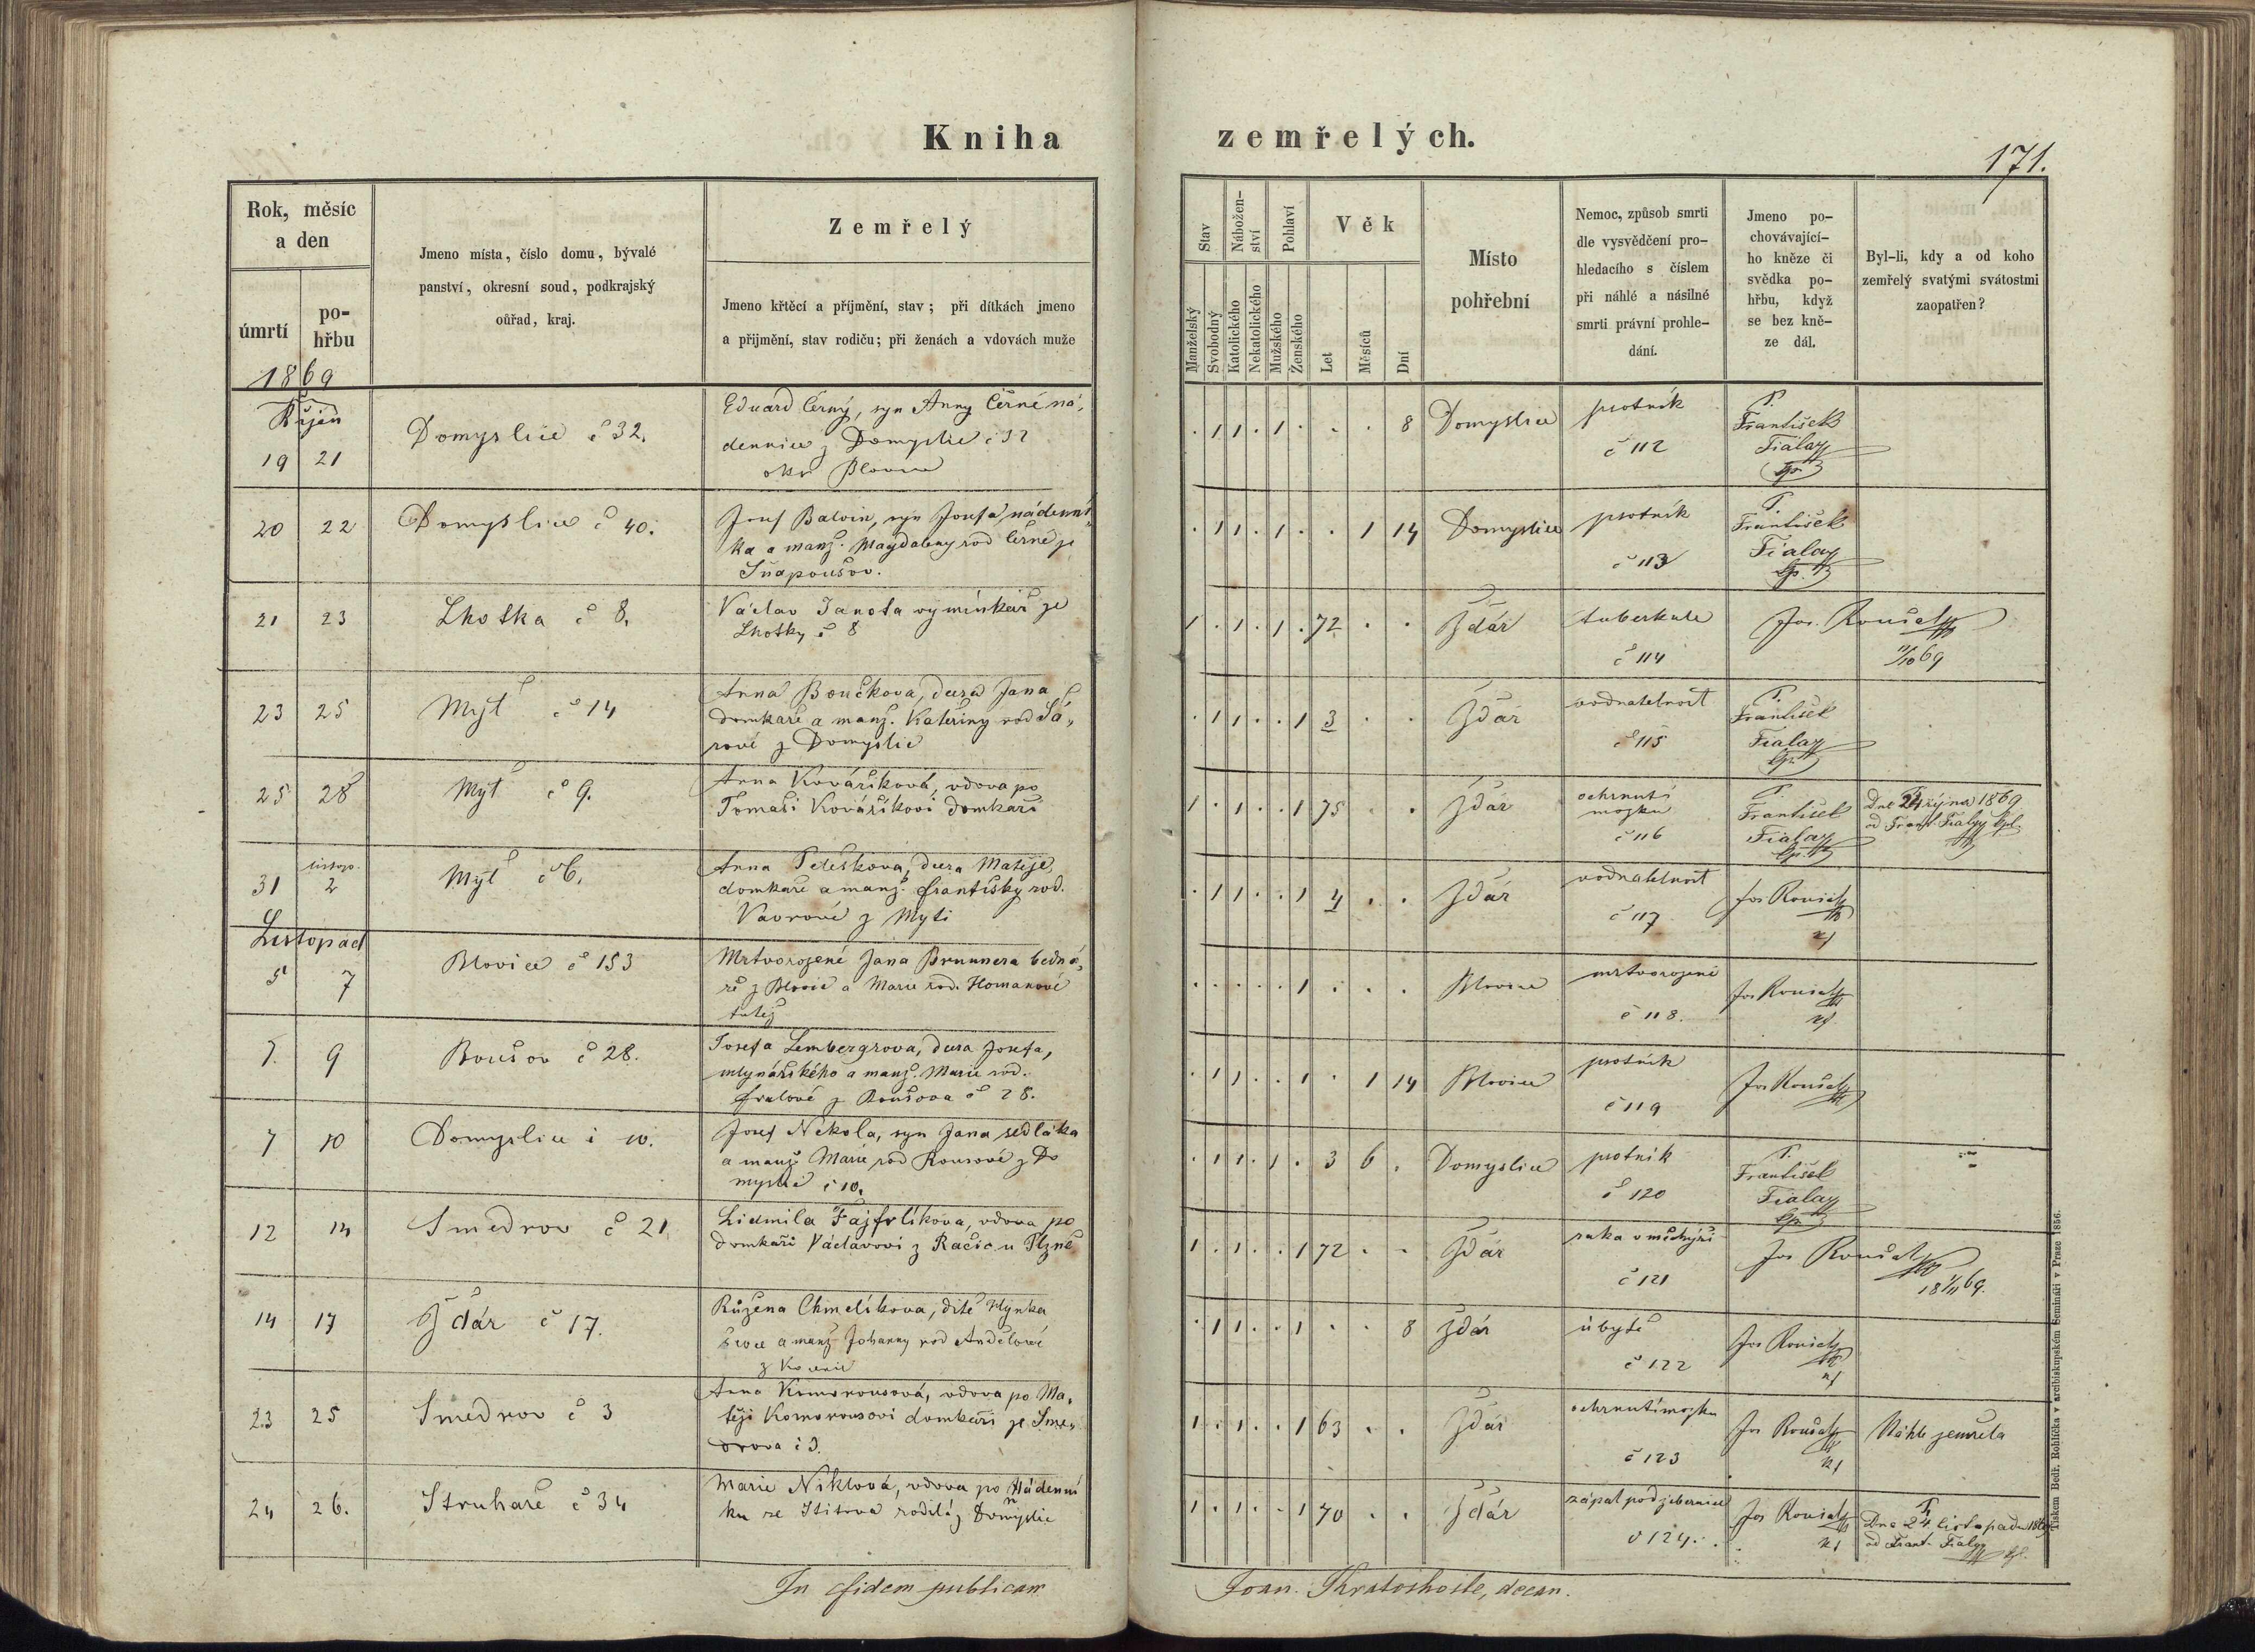 Kniha
zemřelých.
171.
Rok, měsíc
a den
úmrtí
po-
hřbu
1869
Jmeno místa, číslo domu, bývalé
panství, okresní soud, podkrajský
oůřad, kraj.
Zemřelý
Jmeno křtěcí a příjmění, stav; při dítkách jmeno
a přijmění, stav rodičů; při ženách a vdovách muže
Stav
Nábožen-
ství
Pohlaví
Věk
Manželský
Svobodný
Katolického
Nekatolického
Mužského
Ženského
Let
Měsíců
Dní
Místo
pohřební
Nemoc, způsob smrti
dle vysvědčení pro-
hledacího s číslem
při náhlé a násilné
smrti právní prohle-
dání.
Jmeno po-
chovávající-
ho kněze či
svědka po-
hřbu, když
se bez kně-
ze dál.
Byl-li, kdy a od koho
zemřelý svatými svátostmi
zaopatřen?
Říjen
19 21
Domyslice č 32.
Eduard Černý, syn Anny Černé ná-
dennice z Domyslic č 32
okr Blovice
. 1 1 . 1 . . . 8
Domyslice
psotník
č 112
P.
František
Fiala
20 22
Domyslice č 40.
Josef Balvin, syn Josefa, nádenní
ka a manž. Magdaleny rod Černé ze
Sňapoušov.
. 1 1 . 1 . . 1 14
Domyslice
psotník
č 113
P.
František
Fiala
21 23
Lhotka č 8.
Václav Janota vyminkář ze
Lhotky č 8
1 . 1 . 1 . 72 . .
Ždár
tuberkule
č 114
Jos. Roušal
11/10 69
23 25
Mýt č 14
Anna Boučkova, dcera Jana
domkaře a manž. Kateřiny rod Šá-
rové z Domyslic
. 1 1 . . 1 3 . .
Ždár
vodnatelnost
č 115
P.
František
Fiala
25 28
Mýt č 9.
Anna Kovaříková, vdova po
Tomaši Kovaříkovi domkaři
1 . 1 . . 1 75 . .
Ždár
ochrnutí
mozku
č 116
P.
František
Fiala
Dne 24 října 1869
od Frant. Fialy kpl.
31 listop. 2
Mýt č 6.
Anna Peteškova, dcera Matěje,
domkaře a manž. Františky rod.
Vavrové z Mýti
. 1 1 . . 1 4 . .
Ždár
vodnatelnost
č 117
Jos Roušal
Listopad
5 7
Blovice č 153
Mrtvorozené Jana Brunnera bedná-
ře z Blovic a Marie rod. Homanové
tutéž
. . . . . 1 . . .
Blovice
mrtvorozené
č 118.
Jos Roušal
7. 9
Boušov č 28.
Josefa Lembergrova, dcera Josefa,
mlynářského a manž. Marie rod.
Králové z Boušova č 28.
. 1 1 . . 1 . 1 14
Blovice
psotník
č 119
Jos Roušal
7 10
Domyslice č 10.
Josef Nekola, syn Jana sedláka
a manž Marie rod Rousové z Do
myslic č 10.
. 1 1 . 1 . 3 6 .
Domyslice
psotník
č 120
P.
František
Fiala
12 14
Smedrov č 21.
Lidmila Fajfrlíkova, vdova po
domkaři Václavovi z Račic u Plzně
1 . 1 . . 1 72 . .
Ždár
raka v měchýři
č 121
Jos Roušal
14 17
Ždár č 17.
Růžena Chmelíkova, dítě Hynka
ševce a manž Johanny rod Andělové
1 1 . . 1 . . 8
Ždár
úbytě
č 122
Jos Roušal
23 25
Smedrov č 3
Anna Komorousová, vdova po Ma-
těji Komorousovi domkáři ze Sme-
drova č 3.
1 . 1 . . 1 63 . .
Ždár
ochrnutí mozku
č 123
Jos Roušal
Náhle zemřela
24 26.
Struhaře č 34
Marie Niklová, vdova po Nádenní
ku ze Štítova rodilá z Domyslic
1 . 1 . . 1 70 . .
Ždár
zápal pod žebernice
č 124.
Jos Roušal
Dne 24. listopadu 1869
od Frant. Fialy kpl.
In fidem publicam
Joan. Kratoihvile, decan.
Tiskem Bedř. Rohlíčka v arcibiskupském Semináři v Praze 1856.